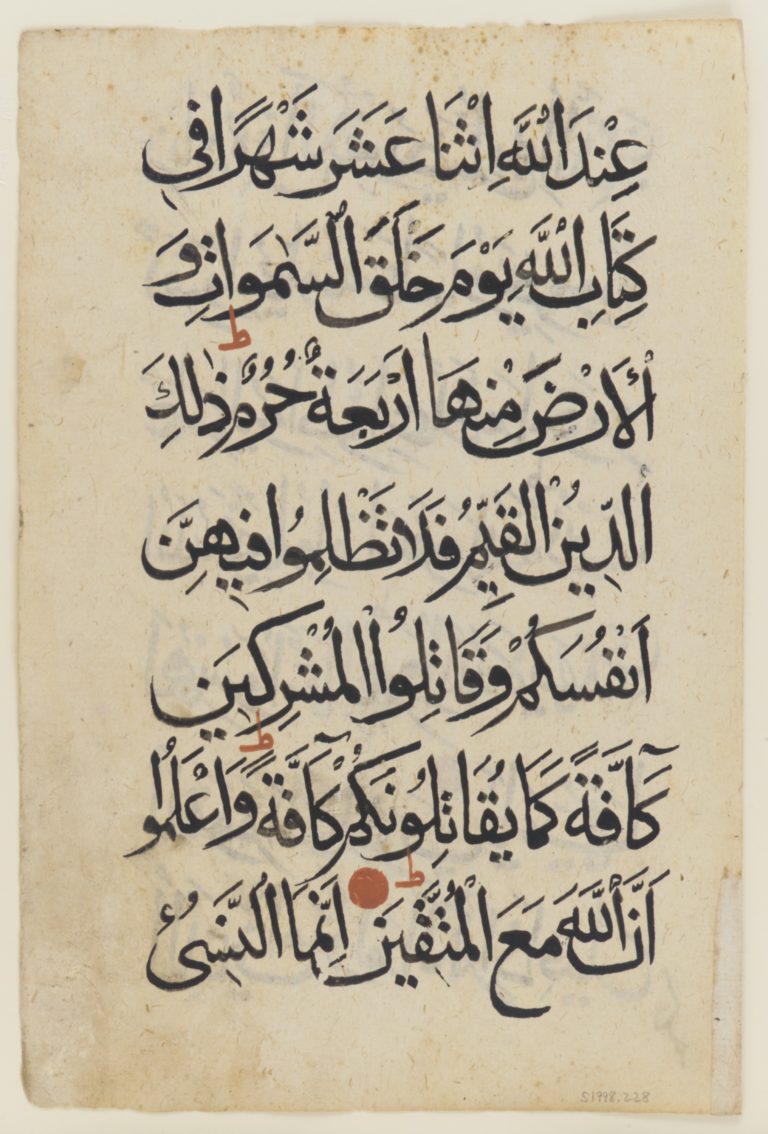 عِنْدَ اللّٰهِ اِثْنَا عَشَرَ شَهْرًا فِى
كِتَابِ اللّٰهِ يَوْمَ خَلَقَ السَّمٰوَاتِ وَ
الْاَرْضَ مِنْهَا اَرْبَعَةٌ حُرُمٌ ذٰلِكَ
ط
الدِّينُ الْقَيِّمُ فَلَا تَظْلِمُوا فِيهِنَّ
اَنْفُسَكُمْ وَقَاتِلُوا الْمُشْرِكِينَ
كَآفَّةً كَمَا يُقَاتِلُونَكُمْ كَآفَّةً وَاعْلَمُوا
ط
اَنَّ اللّٰهَ مَعَ الْمُتَّقِينَ اِنَّمَا النَّسِىُٔ
ط
S1998.228